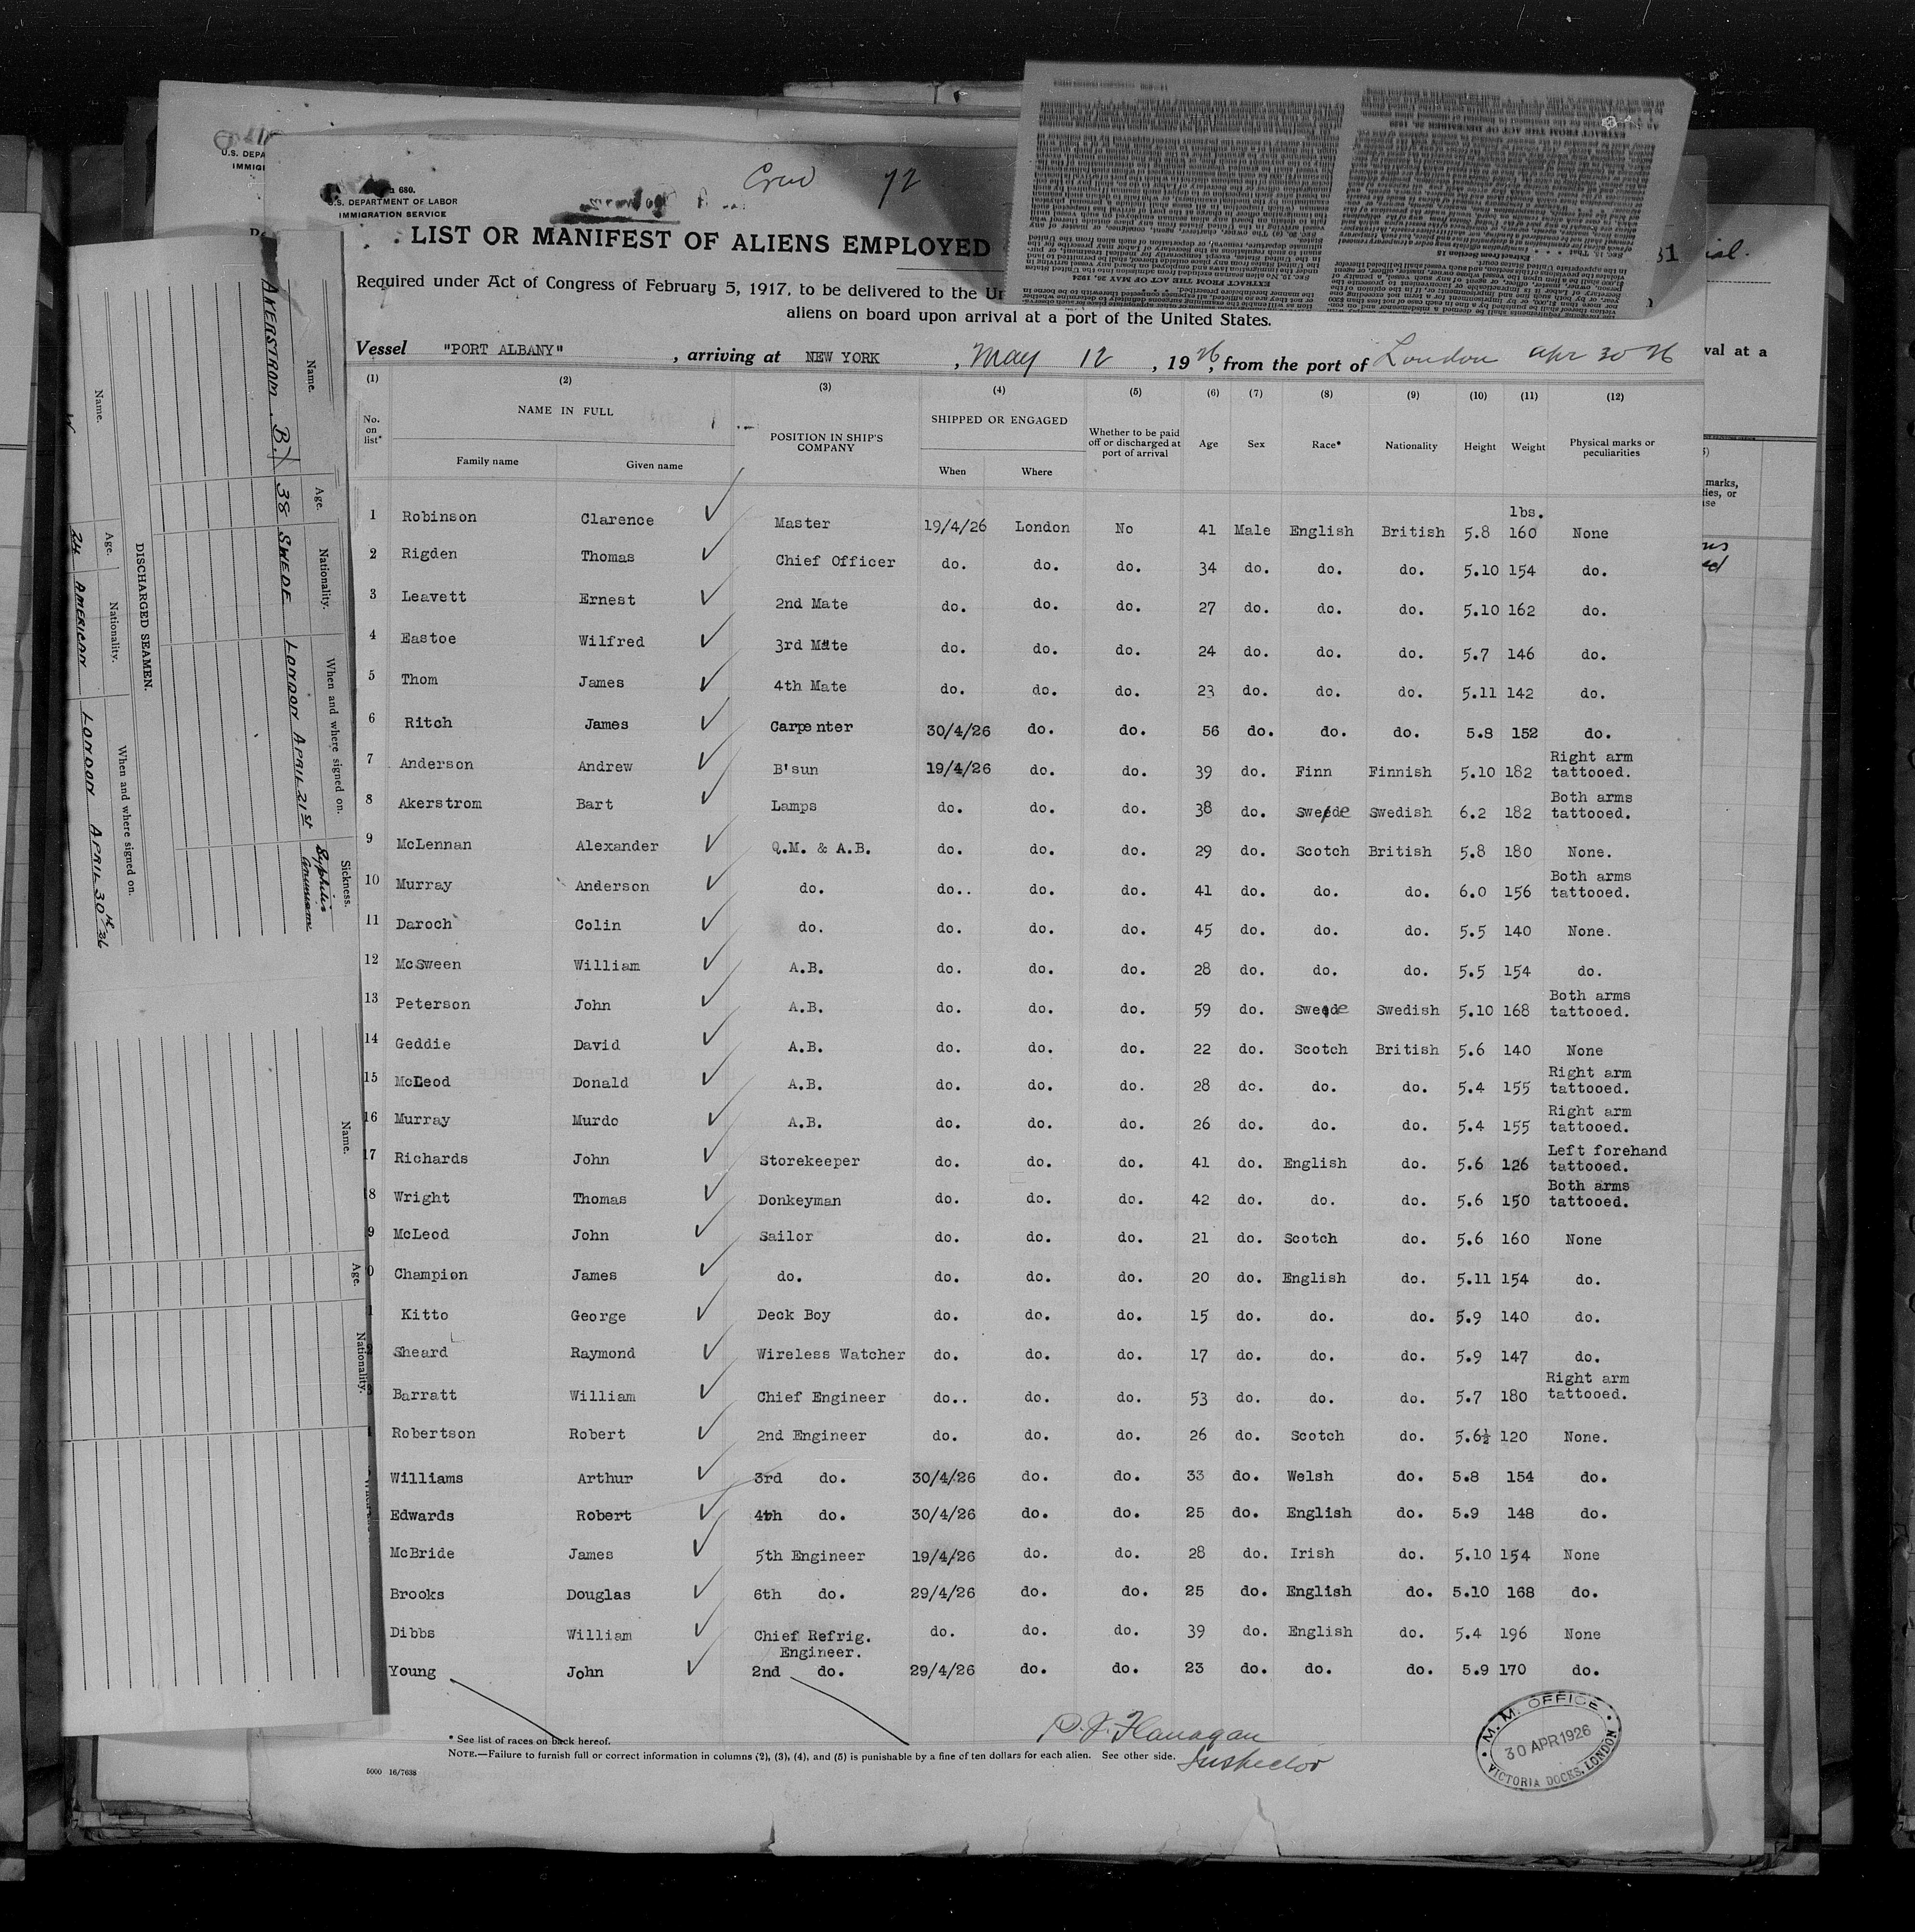 Crew 72
680.
U.S. DEPARTMENT OF LABOR
IMMIGRATION SERVICE
LIST OR MANIFEST OF ALIENS EMPLOYED
Required under Act of Congress of February 5, 1917, to be delivered to the
aliens on board upon arrival at a port of the United States.
Vessel "PORT ALBANY", arriving at NEW YORK, May 12, 1926, from the port of London apr 30 26
(1) (2) (3) (4) (5) (6) (7) (8) (9) (10) (11) (12)
No. on list* NAME IN FULL POSITION IN SHIP'S COMPANY SHIPPED OR ENGAGED Whether to be paid off or discharged at port of arrival Age Sex Race* Nationality Height Weight Physical marks or peculiarities
Family name Given name When Where
lbs.
1 Robinson Clarence ✓ Master 19/4/26 London No 41 Male English British 5.8 160 None
2 Rigden Thomas ✓ Chief Officer do. do. do. 34 do. do. do. 5.10 154 do.
3 Leavett Ernest ✓ 2nd Mate do. do. do. 27 do. do. do. 5.10 162 do.
4 Eastoe Wilfred ✓ 3rd Mate do. do. do. 24 do. do. do. 5.7 146 do.
5 Thom James ✓ 4th Mate do. do. do. 23 do. do. do. 5.11 142 do.
6 Ritch James ✓ Carpenter 30/4/26 do. do. 56 do. do. do. 5.8 152 do.
7 Anderson Andrew ✓ B'sun 19/4/26 do. do. 39 do. Finn Finnish 5.10 182 Right arm tattooed.
8 Akerstrom Bart ✓ Lamps do. do. do. 38 do. Swede Swedish 6.2 182 Both arms tattooed.
9 McLennan Alexander ✓ Q.M. & A.B. do. do. do. 29 do. Scotch British 5.8 180 None.
10 Murray Anderson ✓ do. do.. do. do. 41 do. do. do. 6.0 156 Both arms tattooed.
11 Daroch Colin ✓ do. do. do. do. 45 do. do. do. 5.5 140 None.
12 McSween William ✓ A.B. do. do. do. 28 do. do. do. 5.5 154 do.
13 Peterson John ✓ A.B. do. do. do. 59 do. Swede Swedish 5.10 168 Both arms tattooed.
14 Geddie David ✓ A.B. do. do. do. 22 do. Scotch British 5.6 140 None
15 McLeod Donald ✓ A.B. do. do. do. 28 do. do. do. 5.4 155 Right arm tattooed.
16 Murray Murdo ✓ A.B. do. do. do. 26 do. do. do. 5.4 155 Right arm tattooed.
17 Richards John ✓ Storekeeper do. do. do. 41 do. English do. 5.6 126 Left forehand tattooed.
8 Wright Thomas ✓ Donkeyman do. do. do. 42 do. do. do. 5.6 150 Both arms tattooed.
9 McLeod John ✓ Sailor do. do. do. 21 do. Scotch do. 5.6 160 None
0 Champion James ✓ do. do. do. do. 20 do. English do. 5.11 154 do.
1 Kitto George ✓ Deck Boy do. do. do. 15 do. do. do. 5.9 140 do.
Sheard Raymond ✓ Wireless Watcher do. do. do. 17 do. do. do. 5.9 147 do.
Barratt William ✓ Chief Engineer do.. do. do. 53 do. do. do. 5.7 180 Right arm tattooed.
Robertson Robert ✓ 2nd Engineer do. do. do. 26 do. Scotch do. 5.6½ 120 None.
Williams Arthur ✓ 3rd do. 30/4/26 do. do. 33 do. Welsh do. 5.8 154 do.
Edwards Robert ✓ 4th do. 30/4/26 do. do. 25 do. English do. 5.9 148 do.
McBride James ✓ 5th Engineer 19/4/26 do. do. 28 do. Irish do. 5.10 154 None
Brooks Douglas ✓ 6th do. 29/4/26 do. do. 25 do. English do. 5.10 168 do.
Dibbs William ✓ Chief Refrig. Engineer. do. do. do. 39 do. English do. 5.4 196 None
Young John ✓ 2nd do. 29/4/26 do. do. 23 do. do. do. 5.9 170 do.
* See list of races on back hereof.
NOTE.—Failure to furnish full or correct information in columns (2), (3), (4), and (5) is punishable by a fine of ten dollars for each alien. See other side.
5000 16/7638
D. J. Flanagan
Inspector
M. M. OFFICE
30 APR 1926
VICTORIA DOCKS, LONDON
Name. Age. Nationality. When and where signed on. Sickness.
AKERSTROM. B. 38 SWEDE LONDON APRIL 21st Syphilis
DISCHARGED SEAMEN.
Name. Age. Nationality. When and where signed on.
24 AMERICAN LONDON APRIL 30th 26
Name. Age. Nationality.
EXTRACT FROM THE ACT OF MAY 26, 1924
Extract from Section 15
val at a
marks,